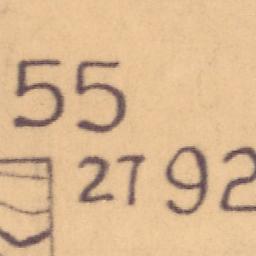 55
27 92